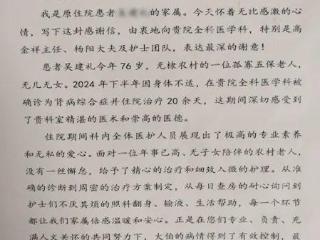 我是原住院患者 的家属。今天怀着无比感激的心
情，写下这封感谢信，由衷地向贵院全科医学科，特别是高
金祥主任、杨阳大夫及护士团队，表达最深的谢意！
患者吴建礼今年 76 岁，无棣农村的一位孤寡五保老人，
无儿无女。2024 年下半年因身体不适，在贵院全科医学科被
确诊为肾病综合症并住院治疗 20 余天，这期间深切感受到
了贵科室精湛的医术和崇高的医德。
住院期间科内全体医护人员展现出了极高的专业素养
和无私的爱心。面对一位年事已高、无子女陪伴的农村老人，
没有一丝懈怠，给予了精心的治疗和细致入微的护理。从准
确的诊断到周密的治疗方案制定，从每日查房的耐心询问到
护士们不厌其烦的照翻身、输液、生活帮助，每一个环节
都让我们家属倍感温暖和安心。正是在您们专业、负责、充
满人文关怀的共同努力下，大伯的病情得到了有效控制，最